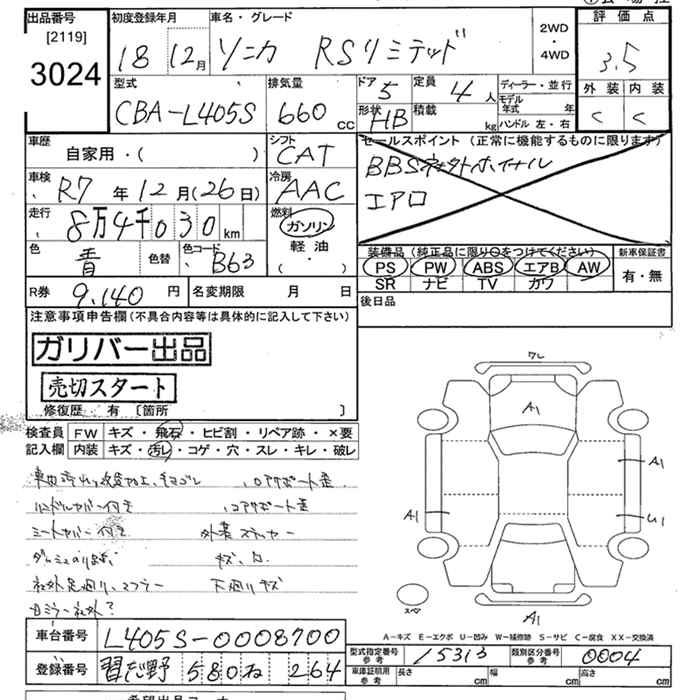 出品番号 初度登録年月 車名・グレード 2WD・4WD 評価点
[2119]
3024 18 12月 ソニカ RSリミテッド 3.5
型式 排気量 ドア 5 定員 4人 ディーラー・並行 外装 内装
CBA-L405S 660cc 形状 HB 積載 kg モデル年式 年 ハンドル 左・右 C C
車歴 自家用・( ) シフト CAT セールスポイント (正常に機能するものに限ります)
車検 R7年12月(26日) 冷房 AAC BBS
エアロ
走行 8万4千030km 燃料 ガソリン
軽油
・( )
色 青 色替 色コード B63 装備品 (純正品に限り○をつけてください) 新車保証書
PS PW ABS エアB AW 有・無
SR ナビ TV カワ
R券 9,140円 名変期限 月 日 後日品
注意事項申告欄(不具合内容等は具体的に記入して下さい)
ガリバー出品
売切スタート
修復歴 有 〔箇所 〕
検査員 FW キズ・飛石・ヒビ割・リペア跡・×要
記入欄 内装 キズ・汚レ・コゲ・穴・スレ・キレ・破レ
ハンドルカバー付き コアサポート歪
シートカバー付き 外装ステッカー
社外足廻り、マフラー 下廻りキズ
フレ
A1
A1
A1
U1
A1
スペア
A-キズ E-エクボ U-凹み W-補修跡 S-サビ C-腐食 XX-交換済
車台番号 L405S-0008700
型式指定番号 参考 15313 類別区分番号 参考 0004
登録番号 習志野 580 ね 264
車庫証明用 参考 長さ 幅 高さ